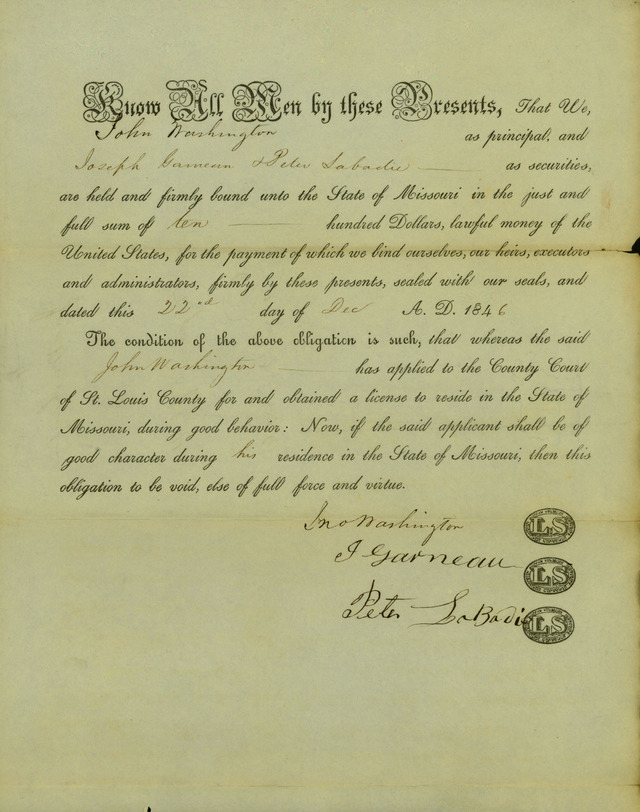 Know All Men by these Presents, That We,
John Washington as principal, and
Joseph Garneau & Peter Labadie as securities,
are held and firmly bound unto the State of Missouri in the just and
full sum of ten hundred Dollars, lawful money of the
United States, for the payment of which we bind ourselves, our heirs, executors
and administrators, firmly by these presents, sealed with our seals, and
dated this 22nd day of Dec A. D. 1846
The condition of the above obligation is such, that whereas the said
John Washington has applied to the County Court
of St. Louis County for and obtained a license to reside in the State of
Missouri, during good behavior: Now, if the said applicant shall be of
good character during his residence in the State of Missouri, then this
obligation to be void, else of full force and virtue.
Jno Washington LS
J Garneau LS
Peter LaBadie LS